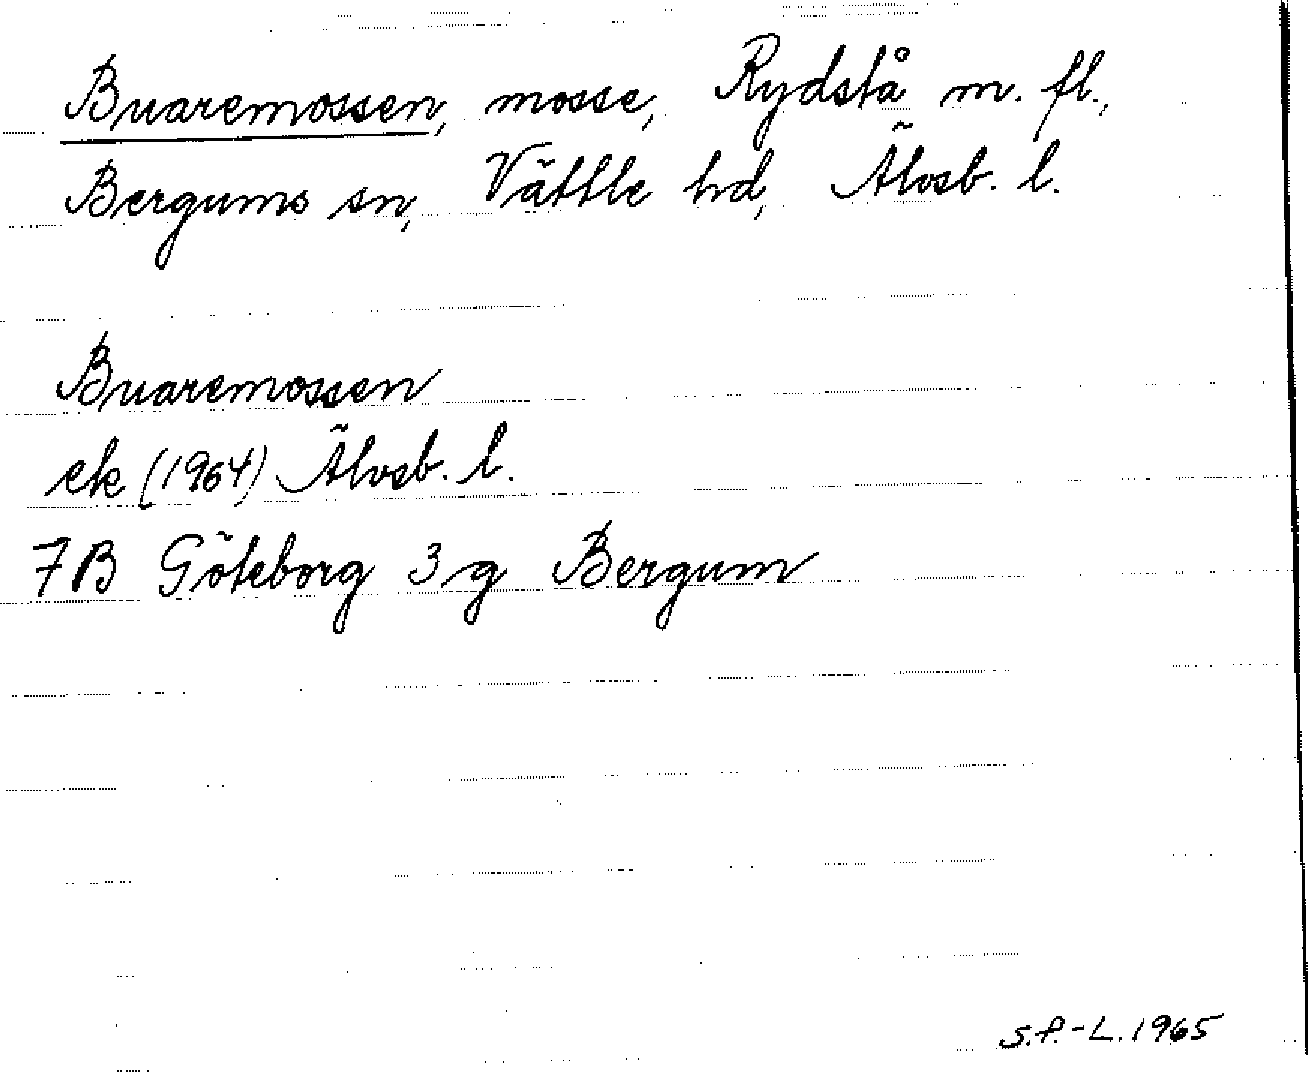 Buaremossen, mosse, Rydstå m. fl.,
Bergums sn, Vättle hd, Älvsb. l.
Buaremossen
ek (1964) Älvsb. l.
7B Göteborg 3 g Bergum
S.P.-L. 1965